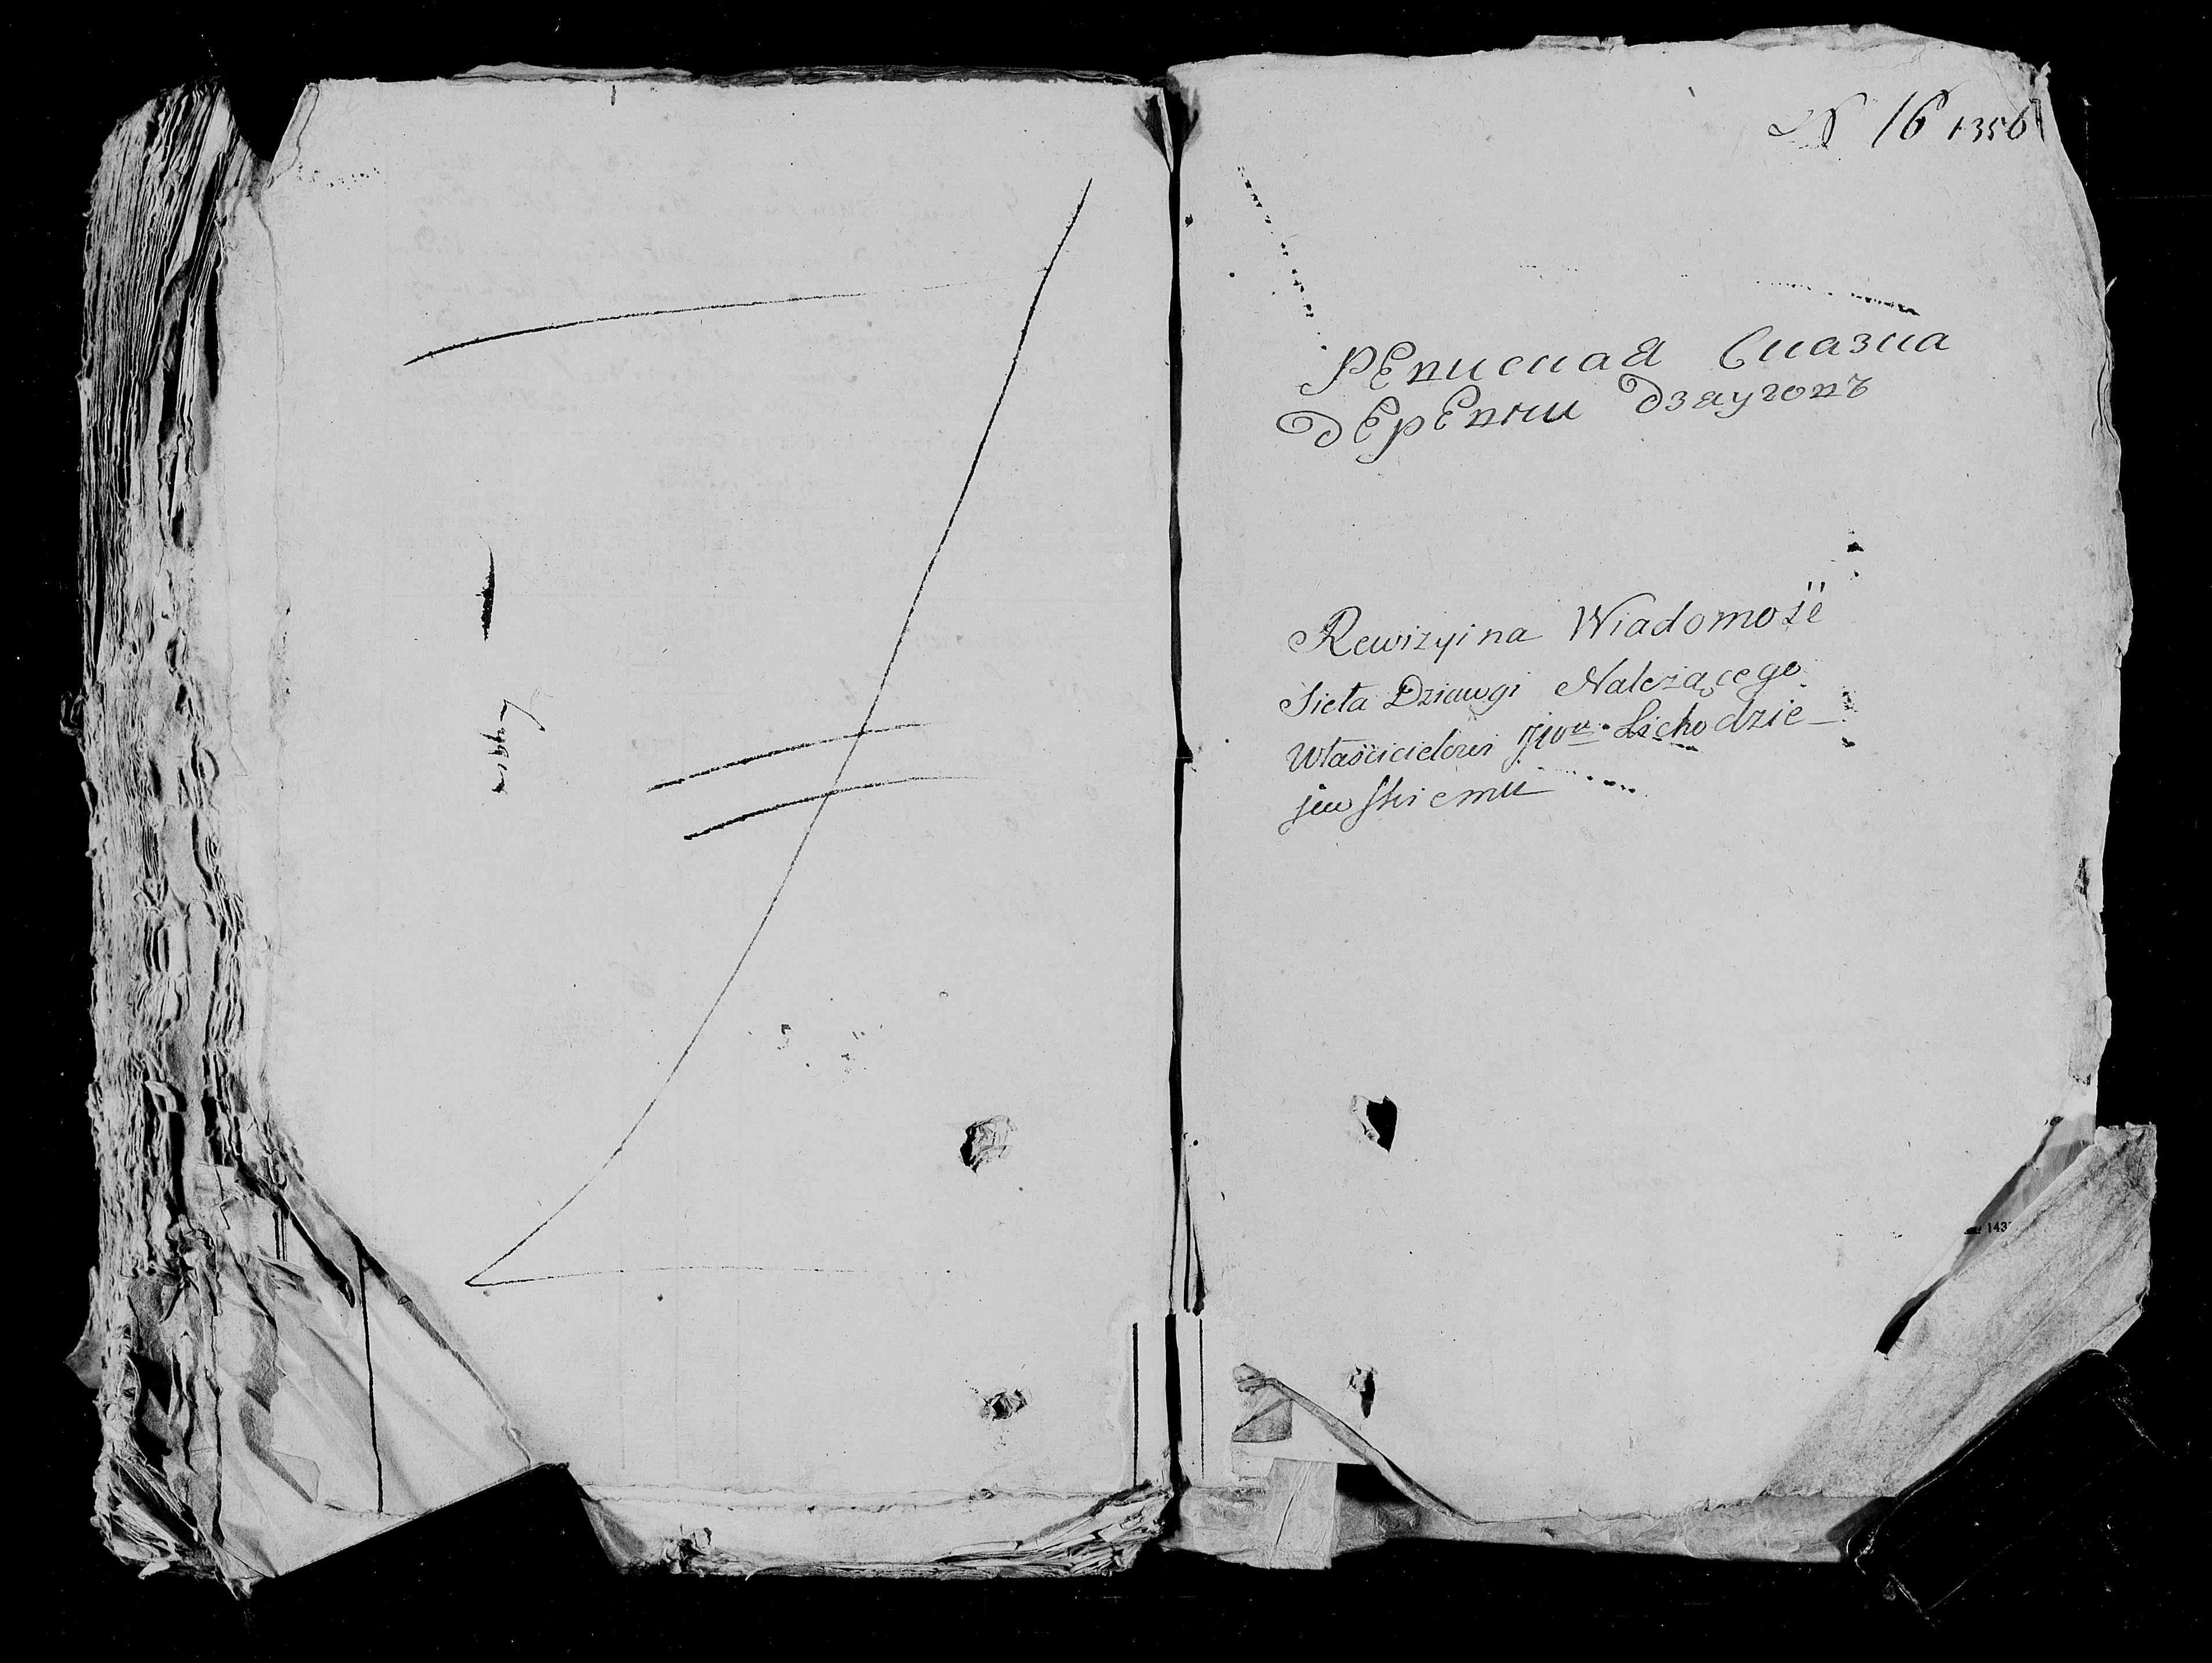 № 16 1356
Ревиская Сказка
деревни Дзауговъ
Rewizyina Wiadomość
Sieła Dziawgi Należącego
Właścicielowi Lichodzie-
jewskiemu
143